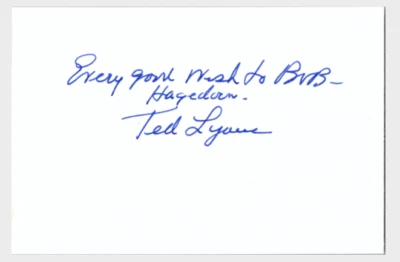 Every good Wish to Bob–
Hagedorn.
Ted Lyons